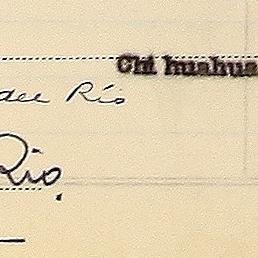 Chi huahua
del Río
Río.